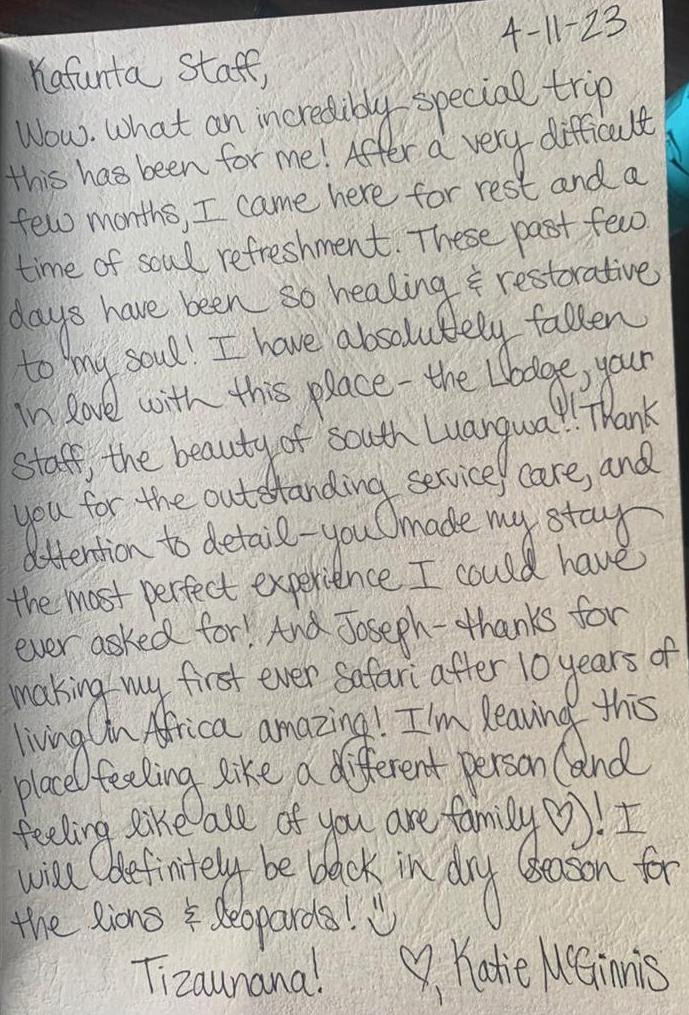 4-11-23
Kafunta Staff,
Wow. What an incredibly special trip
this has been for me! After a very difficult
few months, I came here for rest and a
time of soul refreshment. These past few
days have been so healing & restorative
to my soul! I have absolutely fallen
in love with this place - the Lodge, your
staff, the beauty of South Luangwa!! Thank
you for the outstanding service, care, and
attention to detail - you made my stay
the most perfect experience I could have
ever asked for! And Joseph - thanks for
making my first ever safari after 10 years of
living in Africa amazing! I'm leaving this
place feeling like a different person (and
feeling like all of you are family ♡)! I
will definitely be back in dry season for
the lions & leopards! :)
Tizaunana! ♡, Katie McGinnis